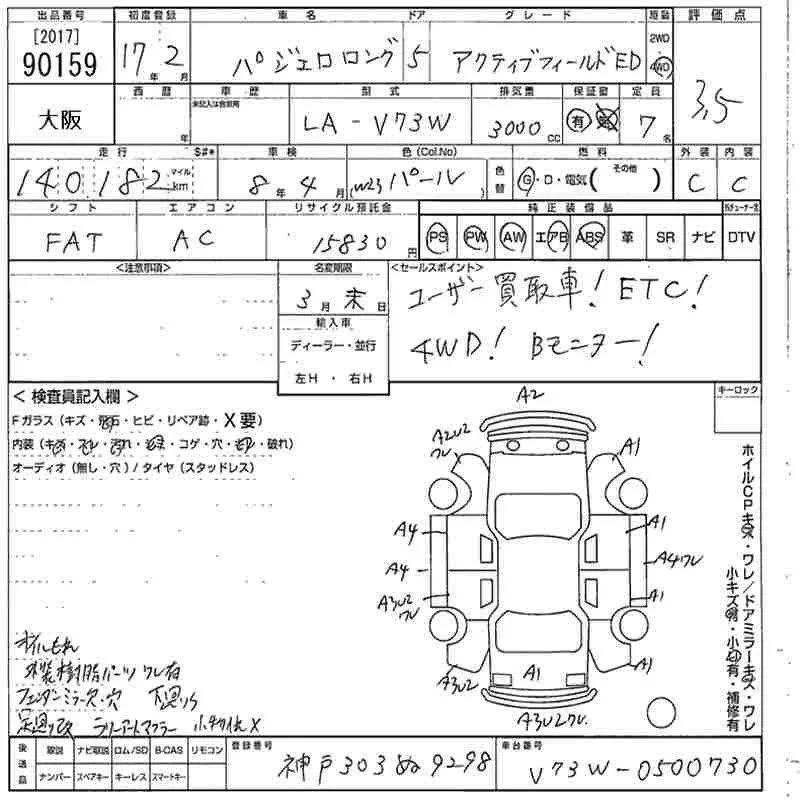 出品番号 初度登録 車名 ドア グレード 駆動 評価点
[2017]
90159 17年 2月 パジェロロング 5 アクティブフィールドED 2WD 4WD 3,5
大阪 西暦 年 車歴 未記入は自家用 型式 排気量 保証書 定員
LA-V73W 3000cc 有 無 7名
走行 S#* 車検 色(Col.No) 色替 燃料 外装 内装
140182 マイル km 8年 4月 (W23 パール) G・D・電気( その他 ) C C
シフト エアコン リサイクル預託金 純正装備品
FAT AC 15830円 PS PW AW エアB ABS 革 SR ナビ DTV
<注意事項> 名変期限 <セールスポイント>
3月 末日 ユーザー買取車! ETC!
輸入車
ディーラー・並行 4WD! Bモニター!
左H・右H
<検査員記入欄> キーロック
Fガラス(キズ・飛石・ヒビ・リペア跡・X要)
内装(キズ・スレ・汚れ・・コゲ・穴・・破れ)
オーディオ(無し・穴)/タイヤ(スタッドレス)
A2
A2U2 ワレ A1
A4 A1
A4 A4ワレ
A3U2 ワレ A1
A3U2 A1 A1
A3U2ワレ
ホイルCPキズ・ワレ/ドアミラーキズ・ワレ
小キズ有・小凹有・補修有
オイルもれ
外装樹脂パーツ ワレ有
フェンダーミラー欠・穴 下廻りサ
足廻り改 ラリーアートマフラー 小物入X
後送品 取説 ナビ取説 ロム/SD B-CAS リモコン 登録番号 車台番号
ナンバー スペアキー キーレス スマートキー 神戸303ぬ9298 V73W-0500730